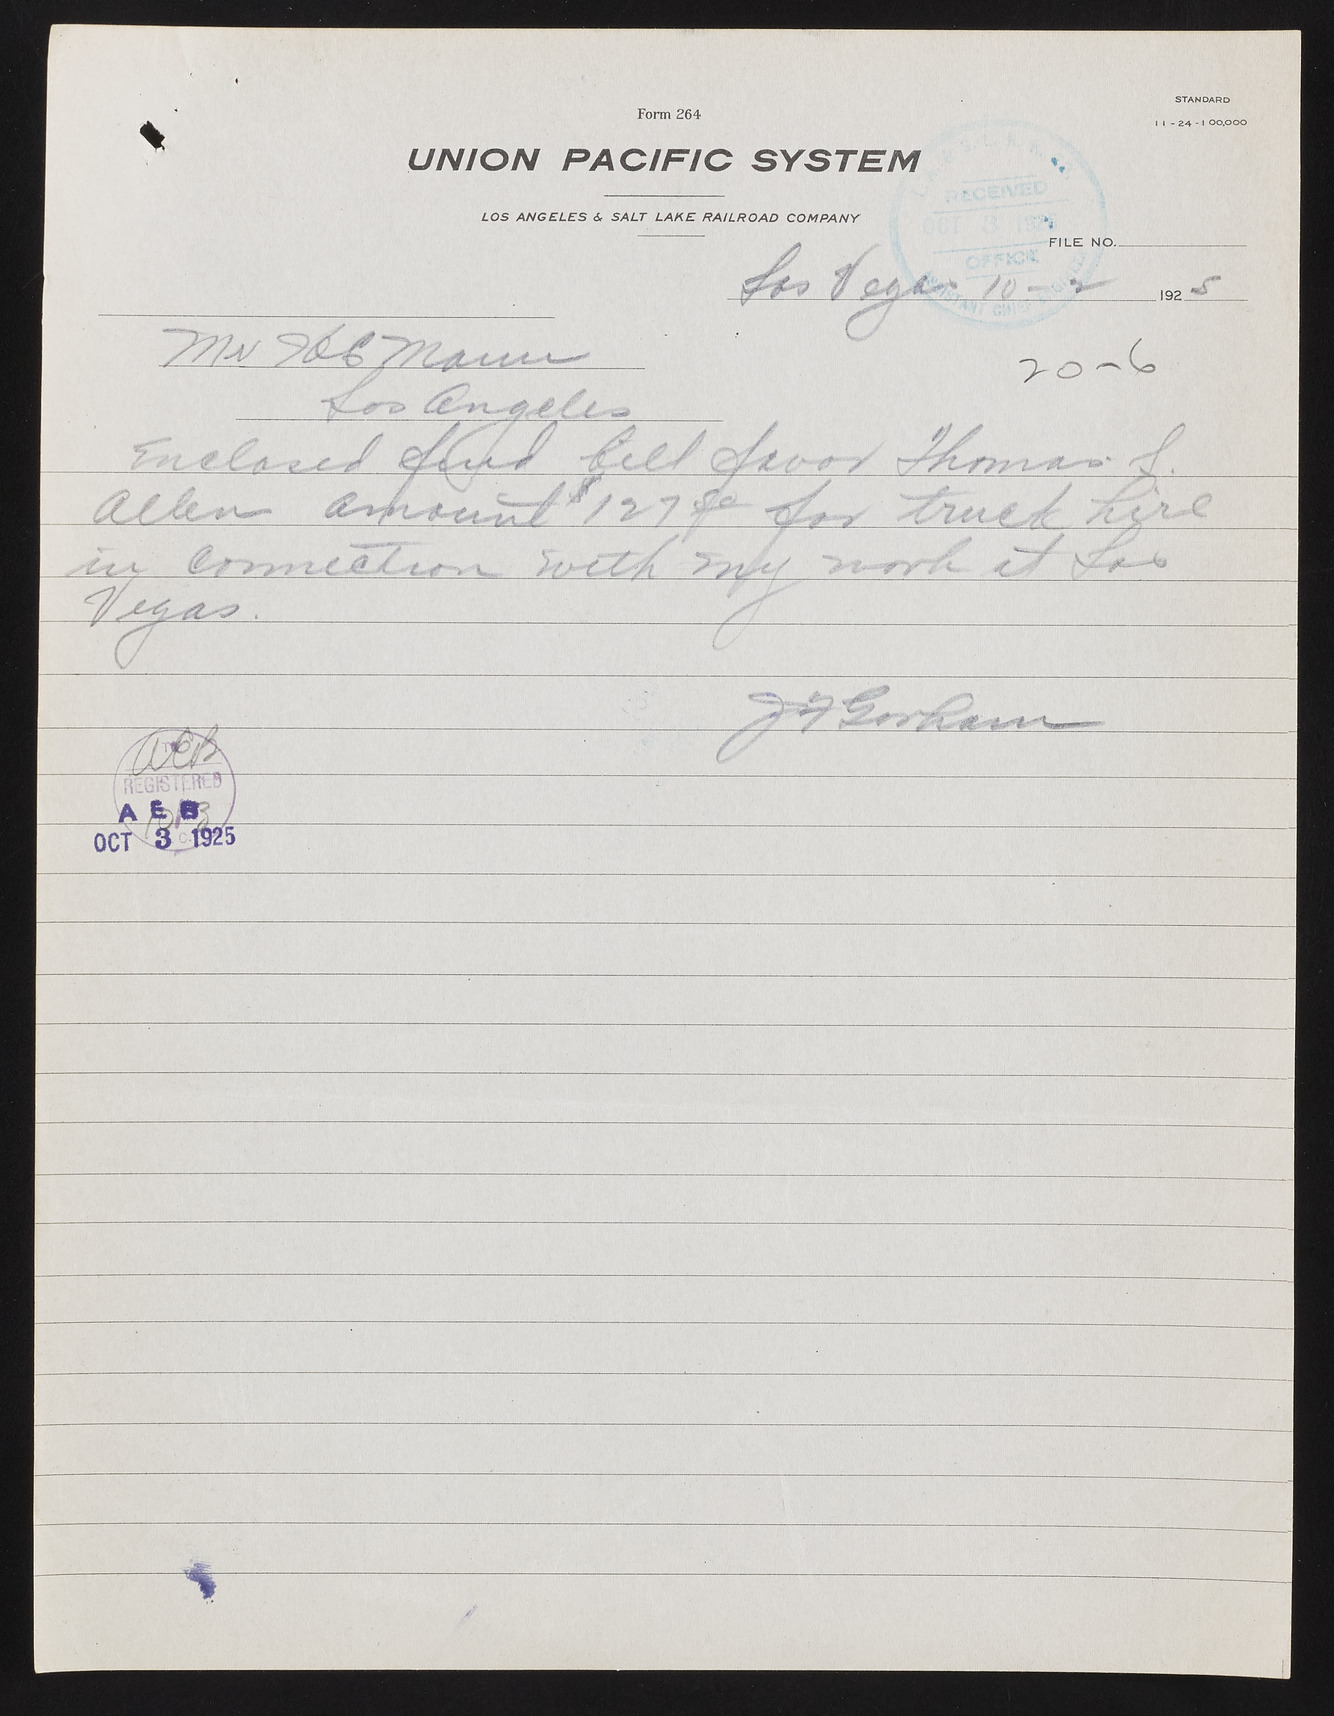 Form 264
STANDARD
11-24-100,000
UNION PACIFIC SYSTEM
LOS ANGELES & SALT LAKE RAILROAD COMPANY
RECEIVED
OCT 3 1925
OFFICE
ASSISTANT CHIEF ENGINEER
FILE NO.
Las Vegas 10-2 1925
20-6
Mr Mann
Los Angeles
Enclosed find bill favor Thomas
Allen amount $127 for truck hire
in connection with my work at Las
Vegas.
J F Gorham
AEB
REGISTERED
A E B
10/3
OCT 3 1925